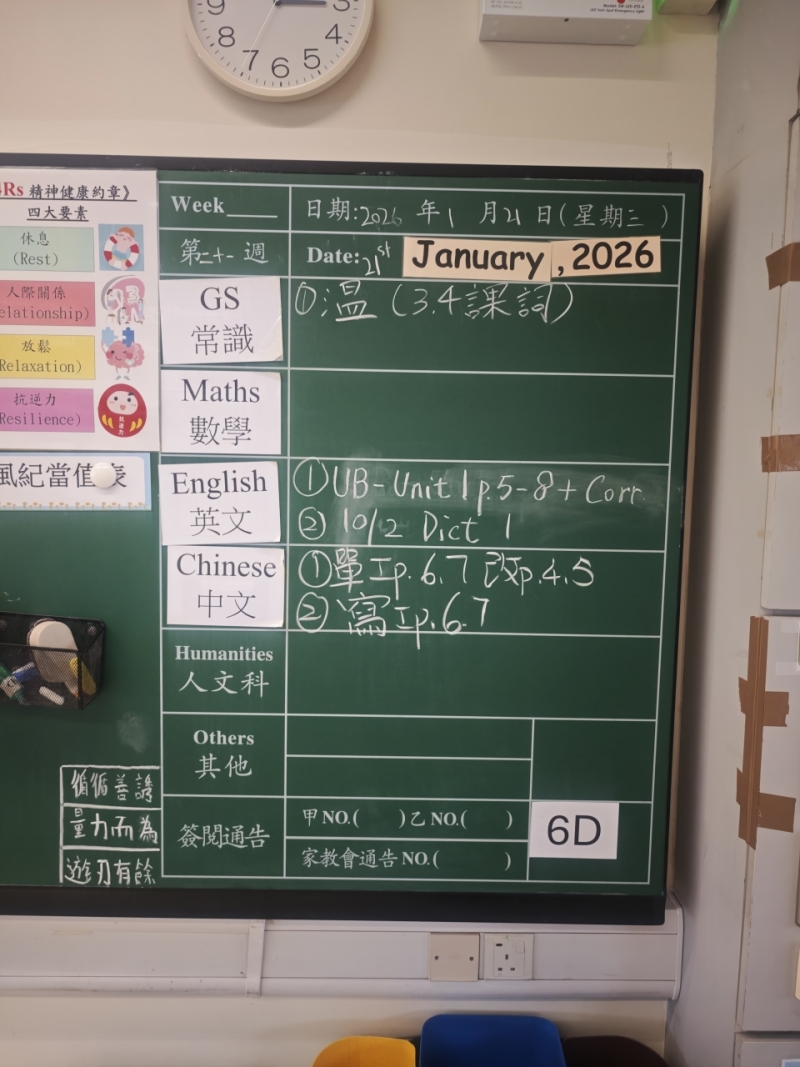 8 7 6 5 4 3
Rs 精神健康約章》
四大要素
休息
(Rest)
人際關係
elationship)
放鬆
Relaxation)
抗逆力
Resilience)
抗逆力
風紀當值表
Week____ 日期:2026 年1 月21 日(星期三)
第二十一週 Date: 21st January, 2026
GS
常識
①溫 (3.4課詞)
Maths
數學
English
英文
①UB-Unit 1 p.5-8 + Corr.
② 10/2 Dict 1
Chinese
中文
①單工p.6.7 改p.4.5
②寫工p.6.7
Humanities
人文科
Others
其他
簽閱通告
甲NO.( )乙NO.( )
家教會通告NO.( )
6D
循循善誘
量力而為
遊刃有餘